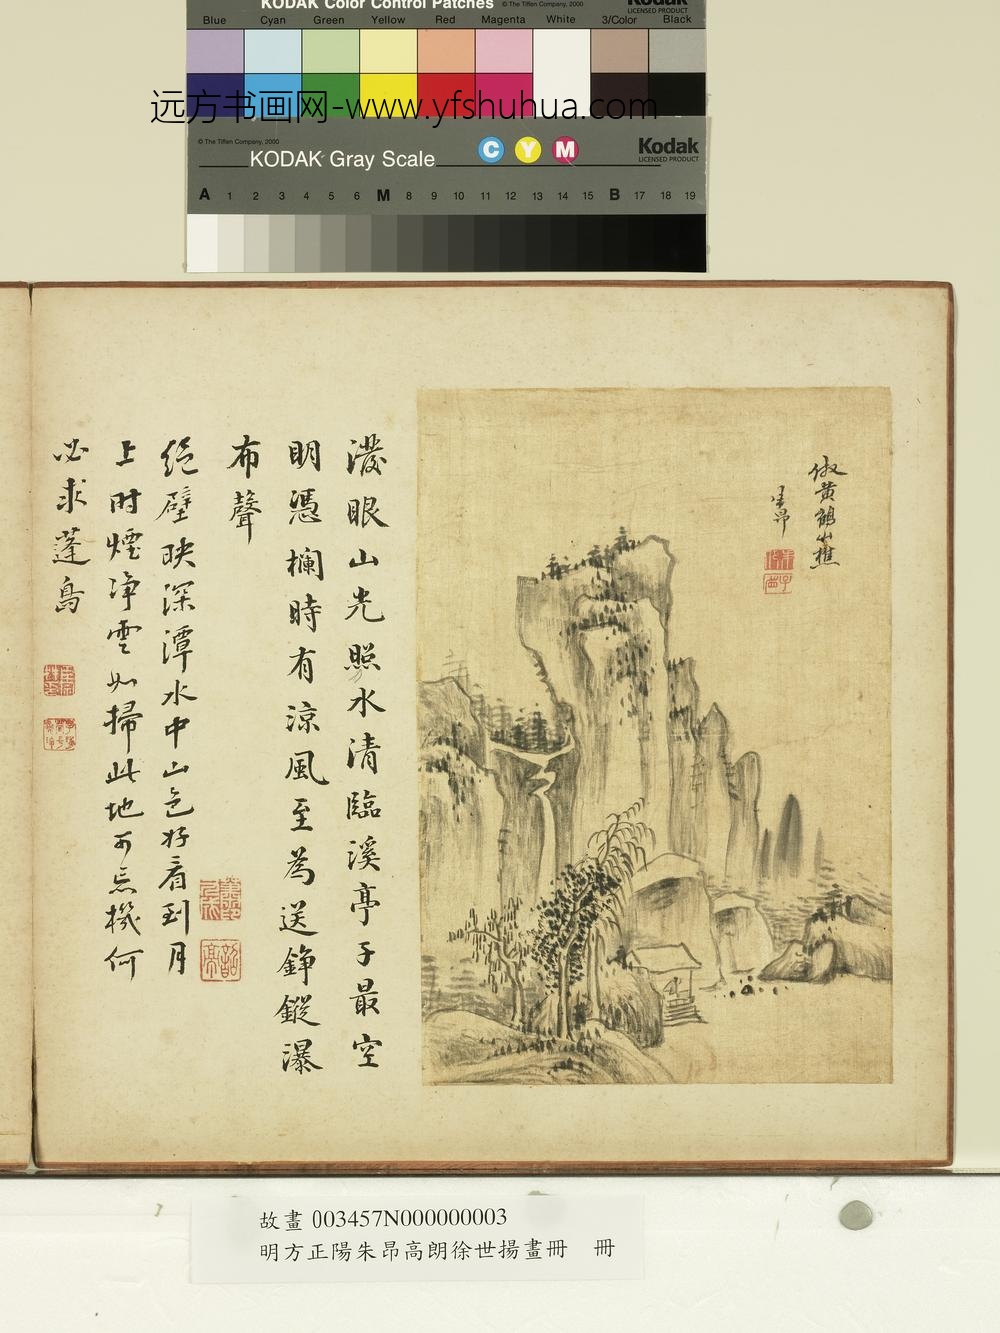 KODAK Color Control Patches © The Tiffen Company, 2000 Kodak
LICENSED PRODUCT
Blue Cyan Green Yellow Red Magenta White 3/Color Black
远方书画网-www.yfshuhua.com
© The Tiffen Company, 2000
KODAK Gray Scale
C Y M
Kodak
LICENSED PRODUCT
A 1 2 3 4 5 6 M 8 9 10 11 12 13 14 15 B 17 18 19
倣黃鶴山樵
朱昂
潑眼山光照水清臨溪亭子最空
明憑欄時有涼風至為送錚鏦瀑
布聲
絕壁映深潭水中山色好看到月
上時煙淨雲如掃此地可忘機何
必求蓬島
故畫 003457N000000003
明方正陽朱昂高朗徐世揚畫冊 冊